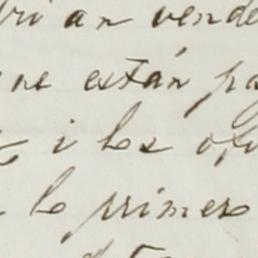 rian vende
que están pa
i los ofi
lo primero